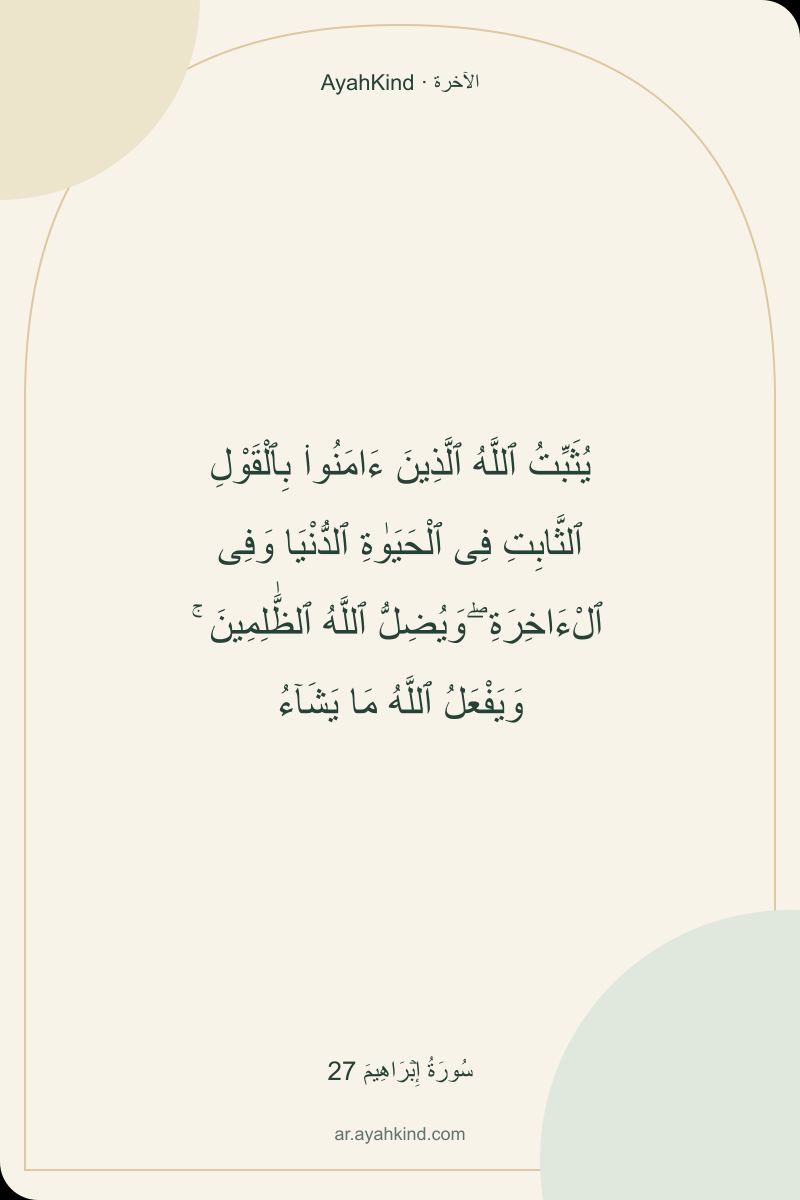 AyahKind · الآخرة
يُثَبِّتُ ٱللَّهُ ٱلَّذِينَ ءَامَنُوا۟ بِٱلْقَوْلِ
ٱلثَّابِتِ فِى ٱلْحَيَوٰةِ ٱلدُّنْيَا وَفِى
ٱلْءَاخِرَةِ ۖ وَيُضِلُّ ٱللَّهُ ٱلظَّٰلِمِينَ ۚ
وَيَفْعَلُ ٱللَّهُ مَا يَشَآءُ
سُورَةُ إِبۡرَاهِيمَ 27
ar.ayahkind.com